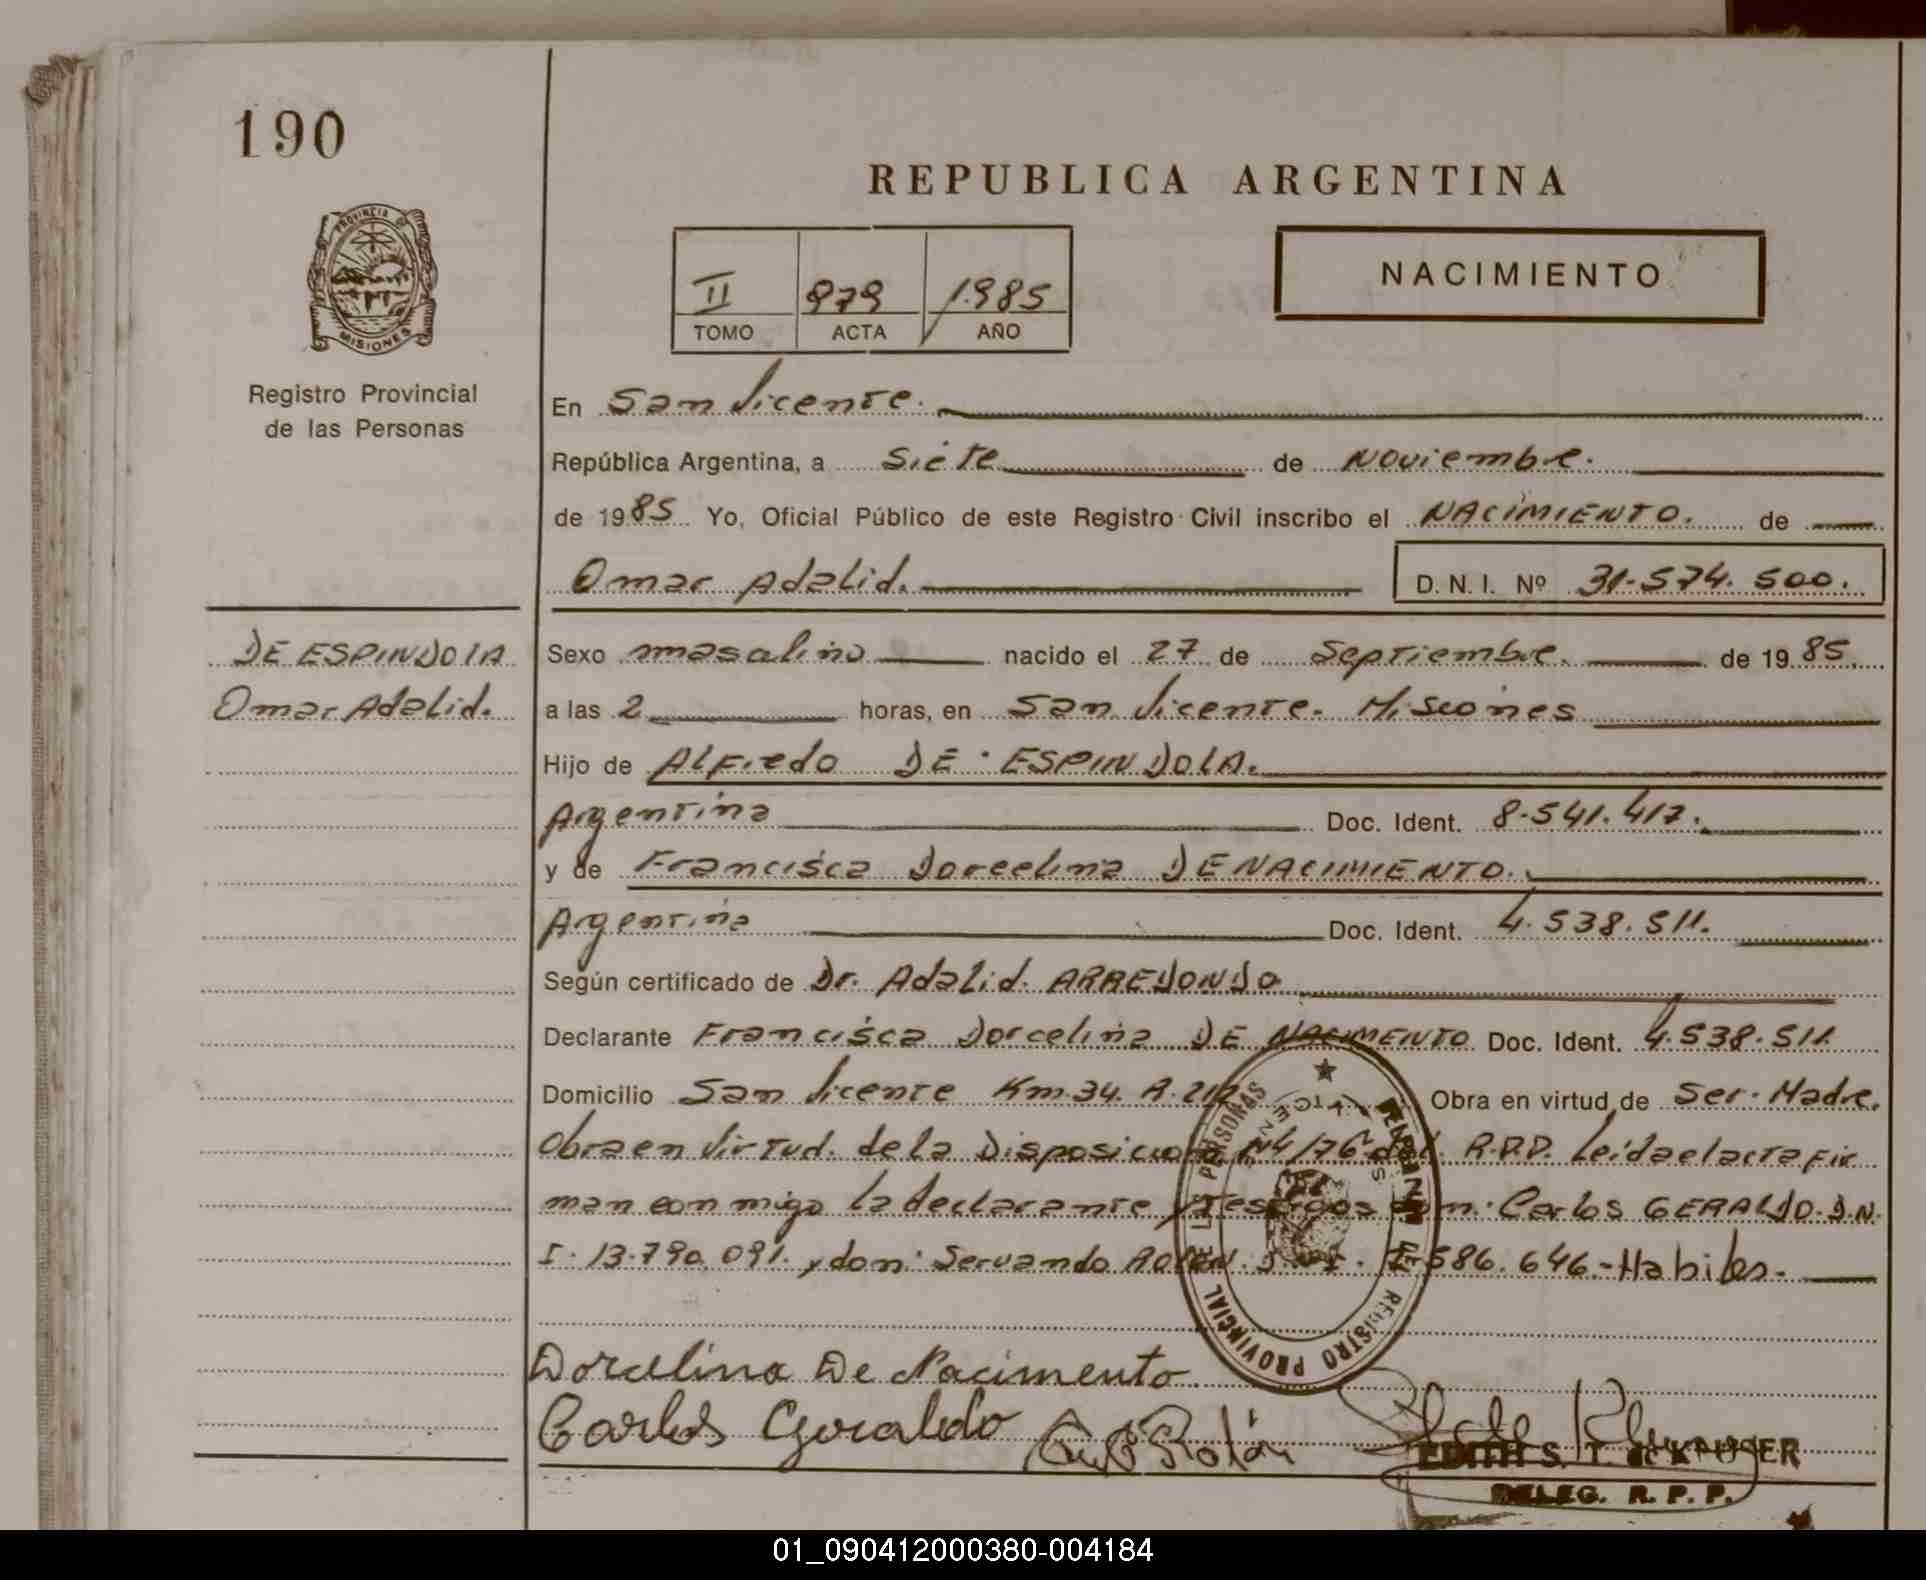 190
REPUBLICA ARGENTINA
PROVINCIA DE
MISIONES
Registro Provincial
de las Personas
II 979 1985
TOMO ACTA AÑO
NACIMIENTO
En San Vicente.
República Argentina, a Siete de Noviembre.
de 1985 Yo, Oficial Público de este Registro Civil inscribo el NACIMIENTO. de
Omar Adalid. D. N. I. Nº 31.574.500.
DE ESPINDOLA
Omar Adalid.
Sexo masculino nacido el 27 de Septiembre. de 1985.
a las 2 horas, en San Vicente. Misiones
Hijo de Alfredo DE ESPINDOLA.
Argentina Doc. Ident. 8.541.417.
y de Francisca Dorcelina DE NACIMIENTO.
Argentina Doc. Ident. 4.538.511.
Según certificado de Dr. Adalid. ARREDONDO
Declarante Francisca Dorcelina DE NACIMENTO Doc. Ident. 4.538.511.
Domicilio San Vicente Km.34. R.212 Obra en virtud de Ser. Madre.
Obra en virtud. de la Disposicion Nº4/76 del. R.P.P. Leida el acta fir
man conmigo la declarante y testigos don: Carlos GERALDO. D.N.
I. 13.790.091. y don: Servando ROLON. 586.646.-Habiles.
REGISTRO PROVINCIAL DE LAS PERSONAS
Dorcelina De Nacimento
Carlos Geraldo Rolón
EDITH S. T. de KRUSER
DELEG. R. P. P.
01_090412000380-004184